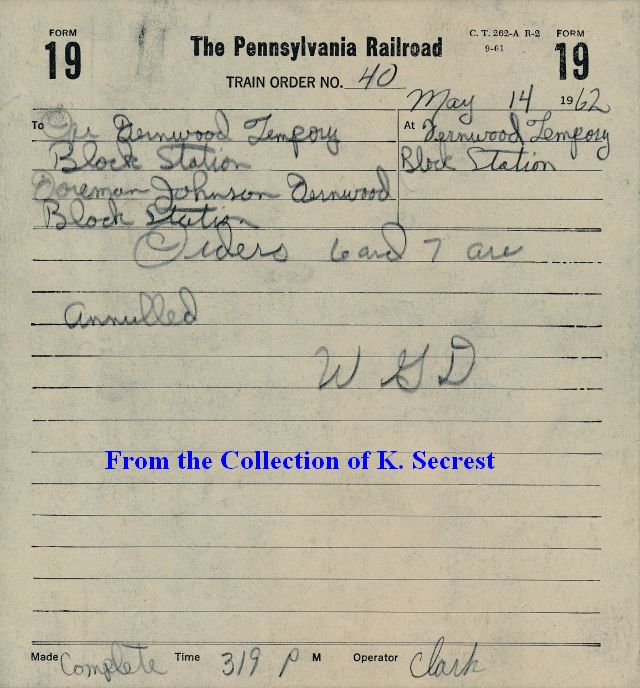 FORM 19
The Pennsylvania Railroad
C. T. 262-A R-2
9-61
FORM 19
TRAIN ORDER NO. 40
May 14 1962
To Opr Dernwood Tempory
Block Station
Foreman Johnson Dernwood
Block Station
At Dernwood Tempory
Block Station
Orders 6 and 7 are
annulled
W G D
From the Collection of K. Secrest
Made Complete Time 319 P M Operator Clark